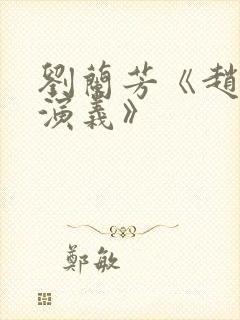 劉蘭芳《趙
演義》
鄭敏